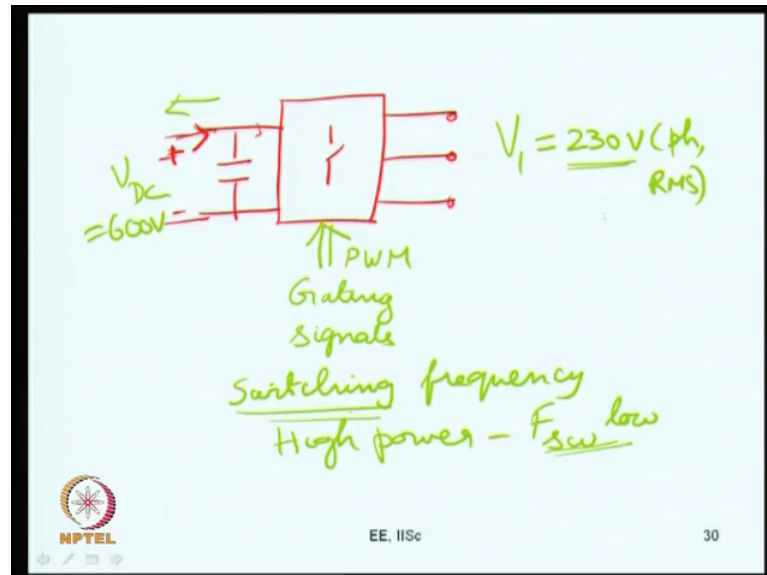 V₁ = 230 V (ph,
RMS)
+
V_DC
= 600V -
PWM
Gating
signals
Switching frequency
High power - F_sw low
NPTEL
EE, IISc
30